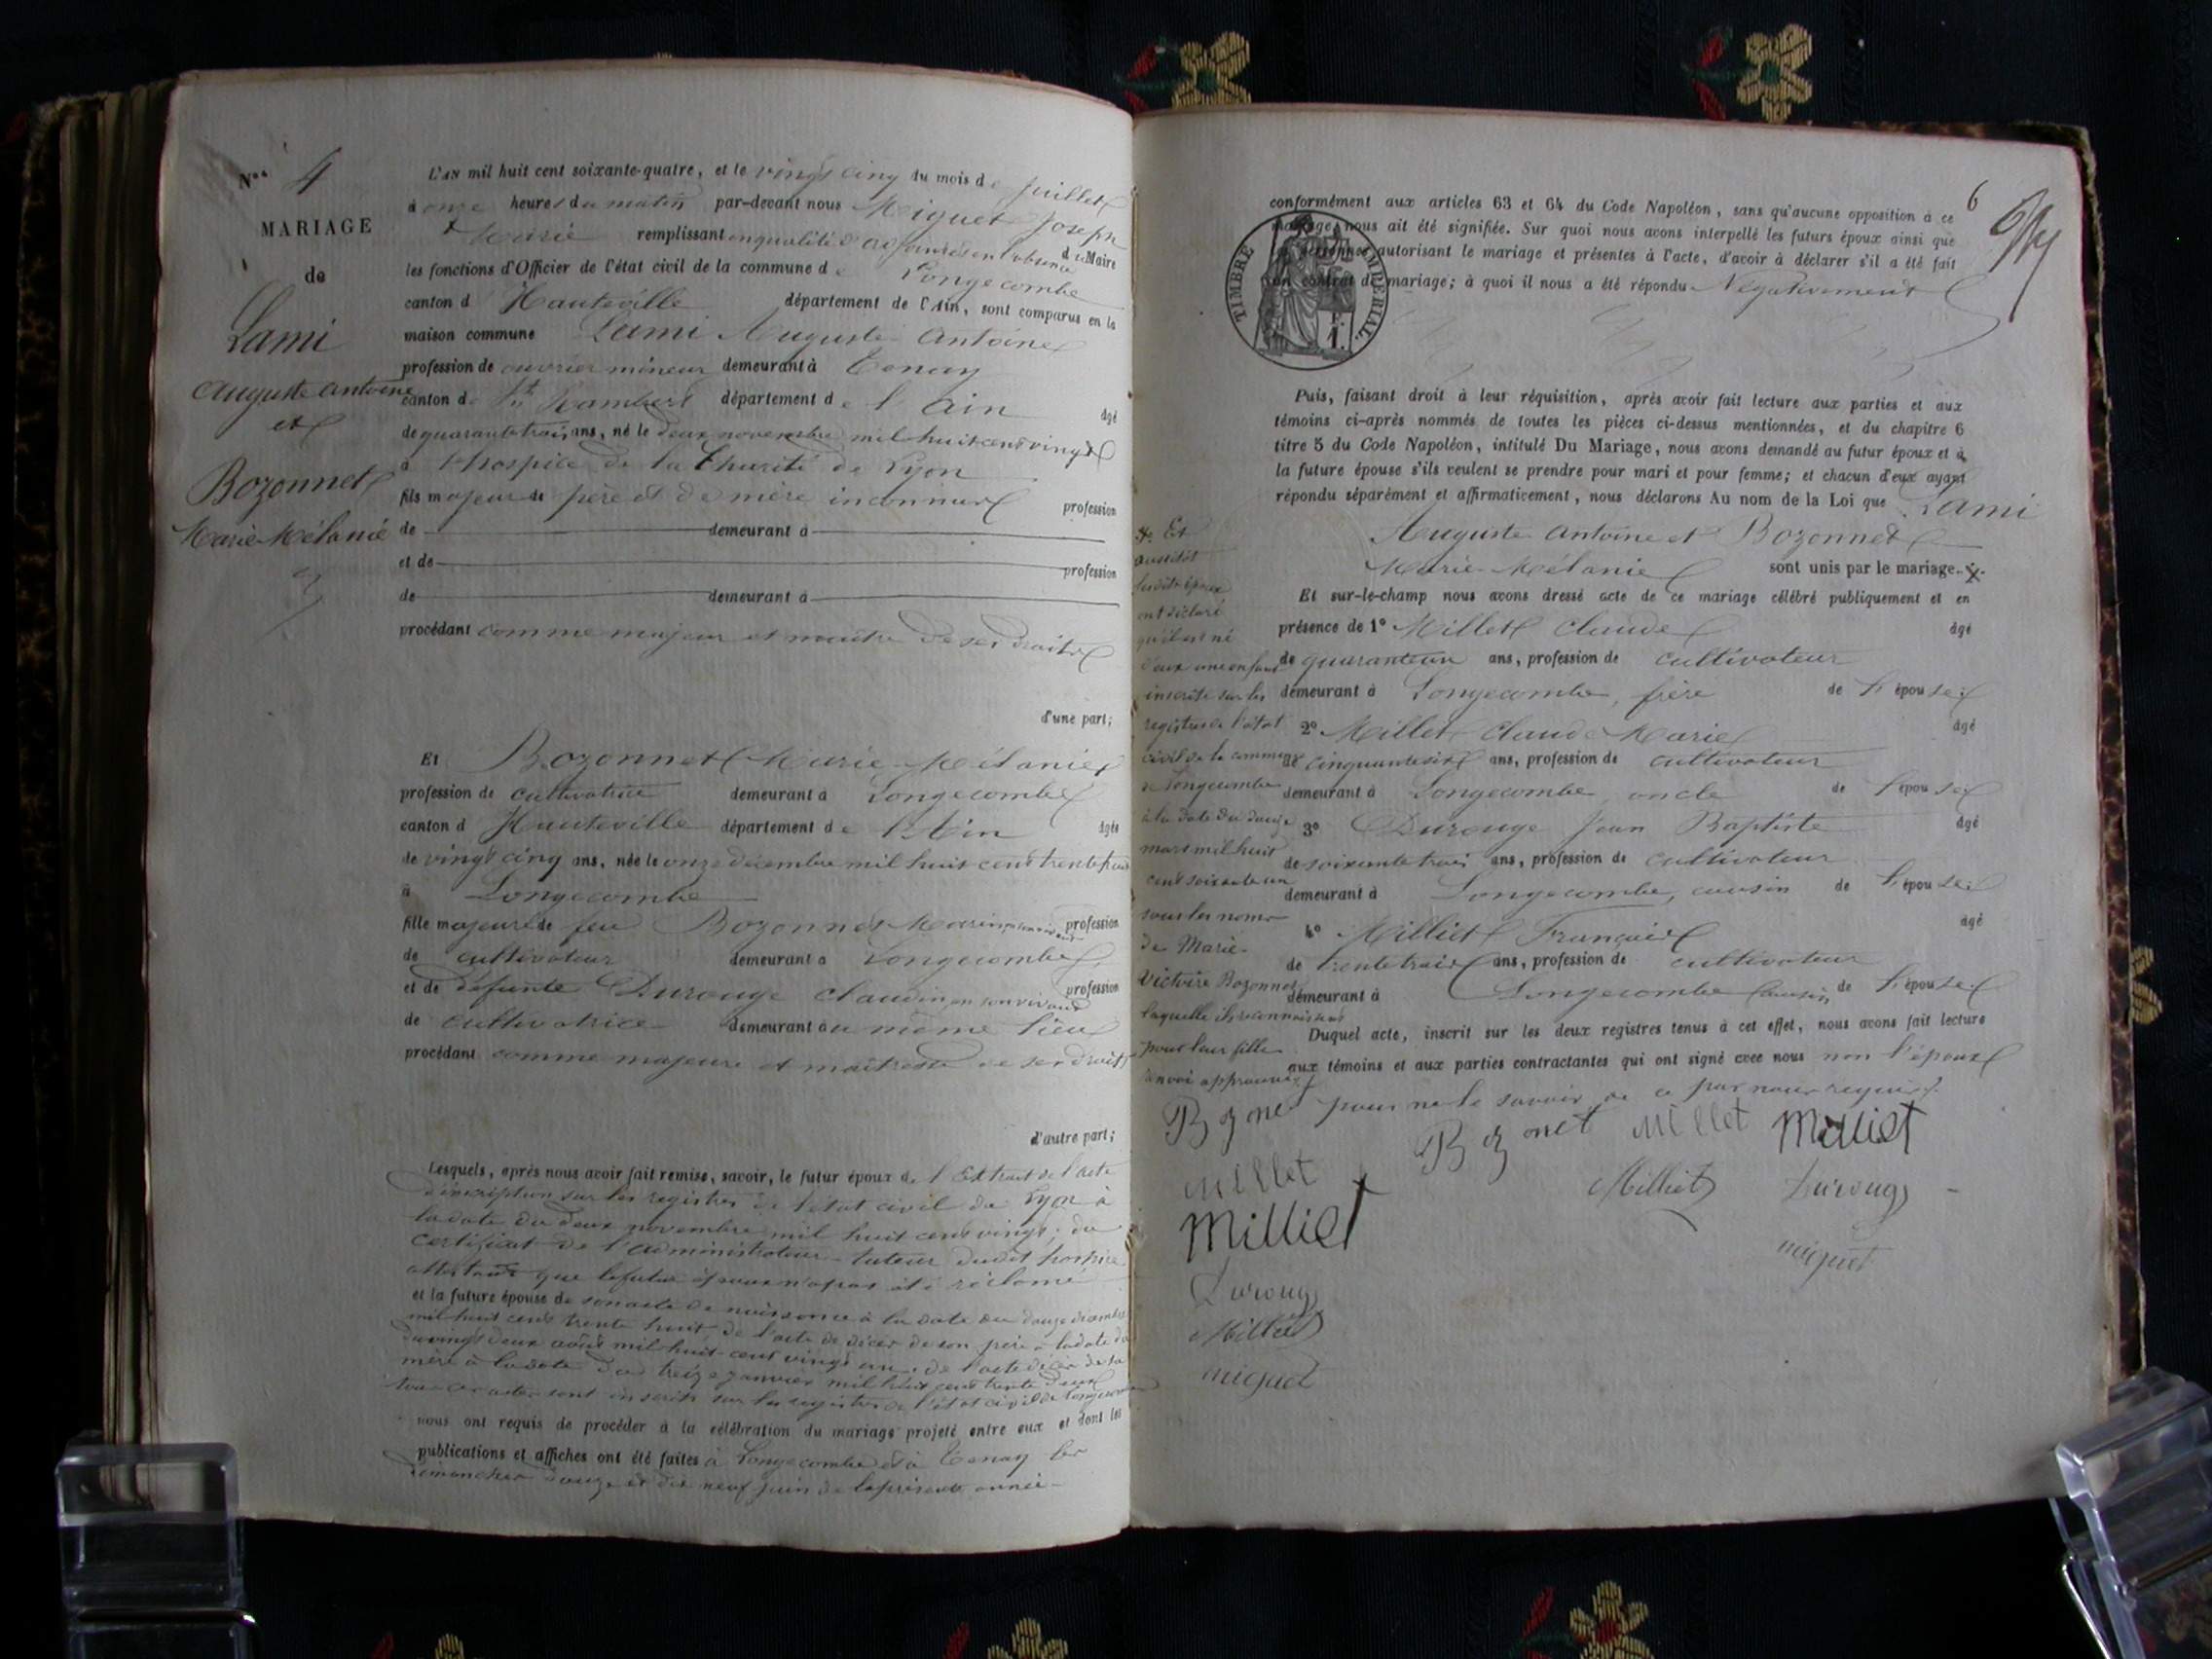 Nos 4
MARIAGE
de
Lami
Auguste Antoine
et
Bozonnet
Marie Mélanie
L'AN mil huit cent soixante-quatre, et le vingt cinq du mois de juillet
à onze heures du matin par-devant nous Miguet Joseph
Marie remplissant en qualité d'adjoint en l'absence du Maire
les fonctions d'Officier de l'état civil de la commune de Longecombe
canton d Hauteville département de l'Ain, sont comparus en la
maison commune Lami Auguste Antoine
profession de ouvrier mineur demeurant à Tenay
canton de St Rambert département de l'Ain âgé
de quarante trois ans, né le deux novembre mil huit cent vingt
à l'hospice de la Charité de Lyon
fils majeur de père et de mère inconnus profession
de demeurant à
et de profession
de demeurant à
procédant comme majeur et maître de ses droits
d'une part;
Et Bozonnet Marie Mélanie
profession de cultivatrice demeurant à Longecombe
canton d Hauteville département de l'Ain âgée
de vingt cinq ans, née le onze décembre mil huit cent trente huit
à Longecombe
fille majeure de feu Bozonnet Marin, en son vivant profession
de cultivateur demeurant à Longecombe
et de défunte Durouge Claudine, en son vivant profession
de cultivatrice demeurant au même lieu
procédant comme majeure et maîtresse de ses droits
d'autre part;
Lesquels, après nous avoir fait remise, savoir, le futur époux de l'Extrait de l'acte
d'inscription sur les registres de l'état civil de Lyon à
la date du deux novembre mil huit cent vingt; du
certificat de l'administrateur-tuteur dudit hospice
attestant que le futur époux n'a pas été réclamé
et la future épouse de son acte de naissance à la date du douze décembre
mil huit cent trente huit, de l'acte de décès de son père à la date du
vingt deux août mil huit cent vingt un, de l'acte décès de sa
mère à la date du treize janvier mil huit cent trente deux
tous ces actes sont inscrits sur les registres de l'état civil de Longecombe
nous ont requis de procéder à la célébration du mariage projeté entre eux et dont les
publications et affiches ont été faites à Longecombe et à Tenay les
dimanches douze et dix neuf juin de la présente année
6
conformément aux articles 63 et 64 du Code Napoléon, sans qu'aucune opposition à ce
mariage nous ait été signifiée. Sur quoi nous avons interpellé les futurs époux ainsi que
les personnes autorisant le mariage et présentes à l'acte, d'avoir à déclarer s'il a été fait
un contrat de mariage; à quoi il nous a été répondu Négativement
TIMBRE IMPÉRIAL
F. 1.
Puis, faisant droit à leur réquisition, après avoir fait lecture aux parties et aux
témoins ci-après nommés de toutes les pièces ci-dessus mentionnées, et du chapitre 6
titre 5 du Code Napoléon, intitulé Du Mariage, nous avons demandé au futur époux et à
la future épouse s'ils veulent se prendre pour mari et pour femme; et chacun d'eux ayant
répondu séparément et affirmativement, nous déclarons Au nom de la Loi que Lami
Auguste Antoine et Bozonnet
Marie Mélanie sont unis par le mariage.
Et sur-le-champ nous avons dressé acte de ce mariage célébré publiquement et en
présence de 1° Millet Claude âgé
de quarante un ans, profession de cultivateur
demeurant à Longecombe, frère de l'épouse;
2° Millet Claude Marie âgé
de cinquante six ans, profession de cultivateur
demeurant à Longecombe, oncle de l'épouse;
3° Durouge Jean Baptiste âgé
de soixante trois ans, profession de cultivateur
demeurant à Longecombe, cousin de l'épouse;
4° Milliet François âgé
de trente trois ans, profession de cultivateur
demeurant à Longecombe cousin de l'épouse
Duquel acte, inscrit sur les deux registres tenus à cet effet, nous avons fait lecture
aux témoins et aux parties contractantes qui ont signé avec nous non l'époux
pour ne le savoir de ce par nous requis.
Et
aussitôt
lesdits époux
ont déclaré
qu'il est né
d'eux une enfant
inscrite sur les
registres de l'état
civil de la commune
de Longecombe
à la date du douze
mars mil huit
cent soixante un
sous les noms
de Marie-
Victoire Bozonnet
laquelle ils reconnaissent
pour leur fille
renvoi approuvé
Bozonet
Bozonet Millet Milliet
Millet
Milliet Durouge
Milliet
miguet
Durouge
Milliet
miguet